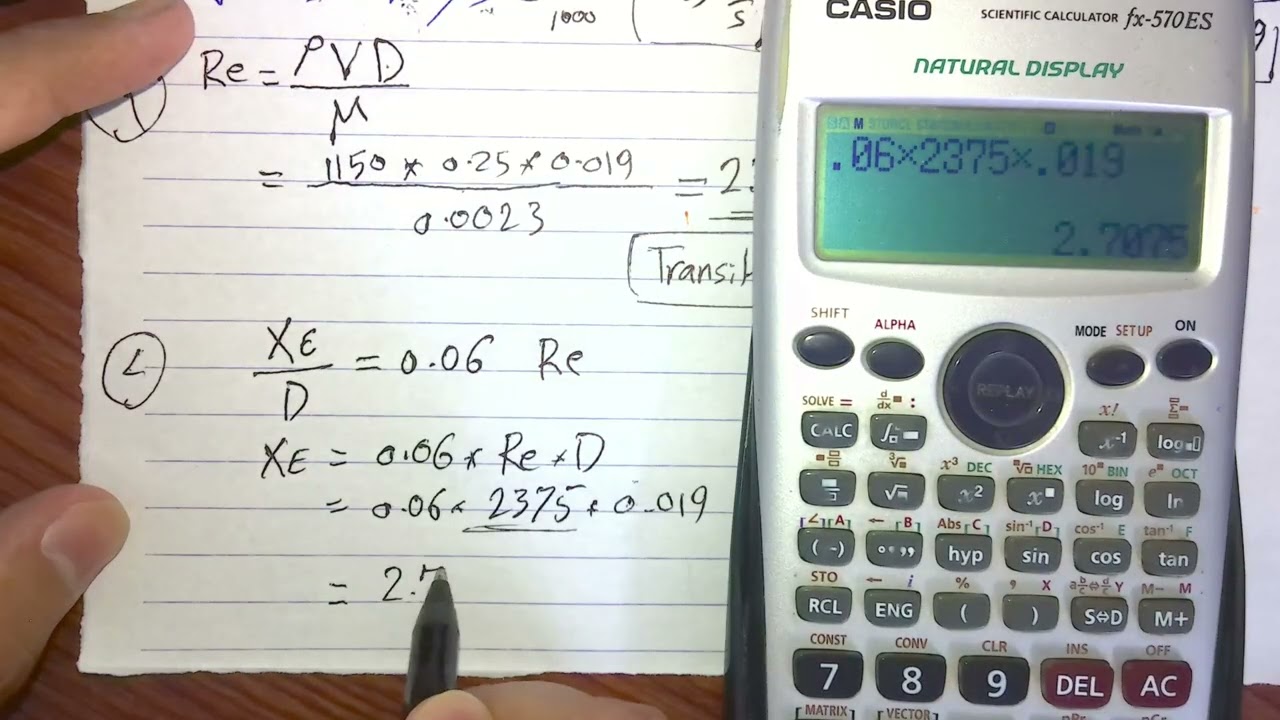 1000
s
1
Re = ρVD
μ
= 1150 * 0.25 * 0.019
0.0023
=
2
XE
D
= 0.06 Re
XE = 0.06 * Re * D
= 0.06 * 2375 * 0.019
= 2.7
CASIO
SCIENTIFIC CALCULATOR fx-570ES
NATURAL DISPLAY
M
Math
.06×2375×.019
2.7075
SHIFT ALPHA MODE SETUP ON
REPLAY
SOLVE = d/dx : x! Σ
CALC ∫ x⁻¹ log
³√ x³ DEC ˣ√ HEX 10ˣ BIN eˣ OCT
√ x² xⁿ log ln
∠ A ← B Abs C sin⁻¹ D cos⁻¹ E tan⁻¹ F
(-) °,,, hyp sin cos tan
STO ← i % , X a b/c⇔d/c Y M- M
RCL ENG ( ) S⇔D M+
CONST CONV CLR INS OFF
7 8 9 DEL AC
MATRIX VECTOR